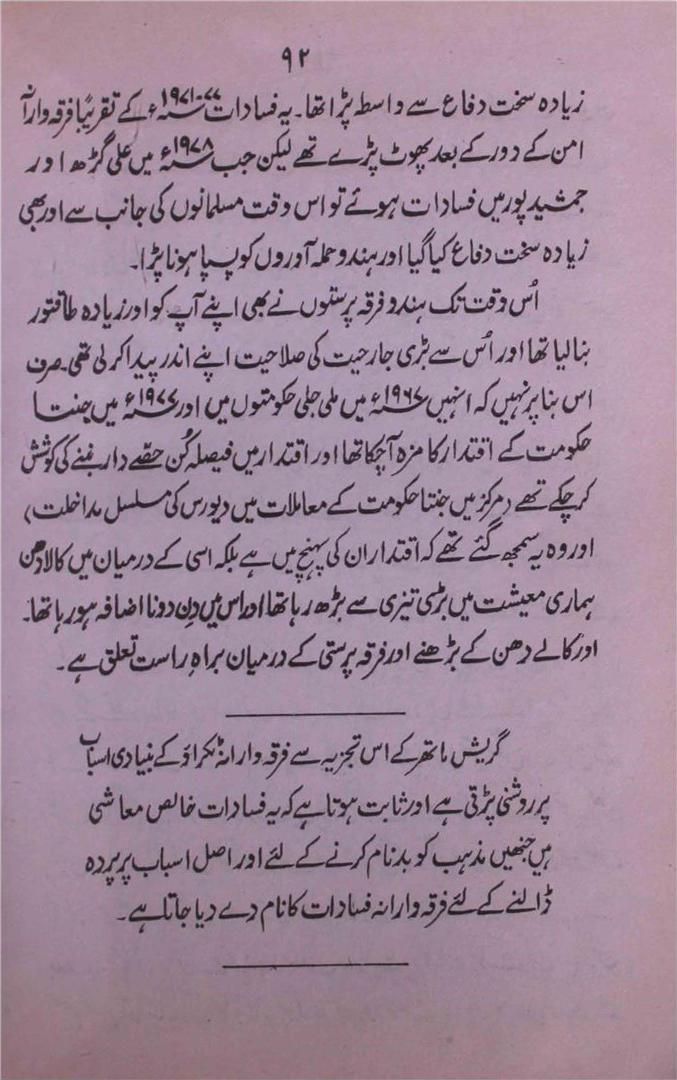 ۹۲
زیادہ سخت دفاع سے واسطہ پڑا تھا۔ یہ فسادات ۷۷-۱۹۷۱ء کے تقریباً فرقہ وارانہ
امن کے دور کے بعد پھوٹ پڑے تھے لیکن جب ۱۹۷۸ء میں علی گڑھ اور
جمشید پور میں فسادات ہوئے تو اس وقت مسلمانوں کی جانب سے اور بھی
زیادہ سخت دفاع کیا گیا اور ہندو حملہ آوروں کو پسپا ہونا پڑا۔
اُس وقت تک ہندو فرقہ پرستوں نے بھی اپنے آپ کو اور زیادہ طاقتور
بنا لیا تھا اور اُس سے بڑی جارحیت کی صلاحیت اپنے اندر پیدا کر لی تھی۔ صرف
اس بنا پر نہیں کہ انہیں ۱۹۶۷ء میں ملی جلی حکومتوں میں اور ۱۹۷۷ء میں جنتا
حکومت کے اقتدار کا مزہ آچکا تھا اور اقتدار میں فیصلہ کُن حصے دار بننے کی کوشش
کر چکے تھے (مرکز میں جنتا حکومت کے معاملات میں دیورس کی مسلسل مداخلت)
اور وہ یہ سمجھ گئے تھے کہ اقتدار ان کی پہنچ میں ہے بلکہ اسی کے درمیان میں کالا دھن
ہماری معیشت میں بڑی تیزی سے بڑھ رہا تھا اور اس میں دن دونا اضافہ ہو رہا تھا۔
اور کالے دھن کے بڑھنے اور فرقہ پرستی کے درمیان براہِ راست تعلق ہے۔
گریش ماتھر کے اس تجزیہ سے فرقہ وارانہ ٹکراؤ کے بنیادی اسباب
پر روشنی پڑتی ہے اور ثابت ہوتا ہے کہ یہ فسادات خالص معاشی
ہیں جنھیں مذہب کو بدنام کرنے کے لئے اور اصل اسباب پر پردہ
ڈالنے کے لئے فرقہ وارانہ فسادات کا نام دے دیا جاتا ہے۔